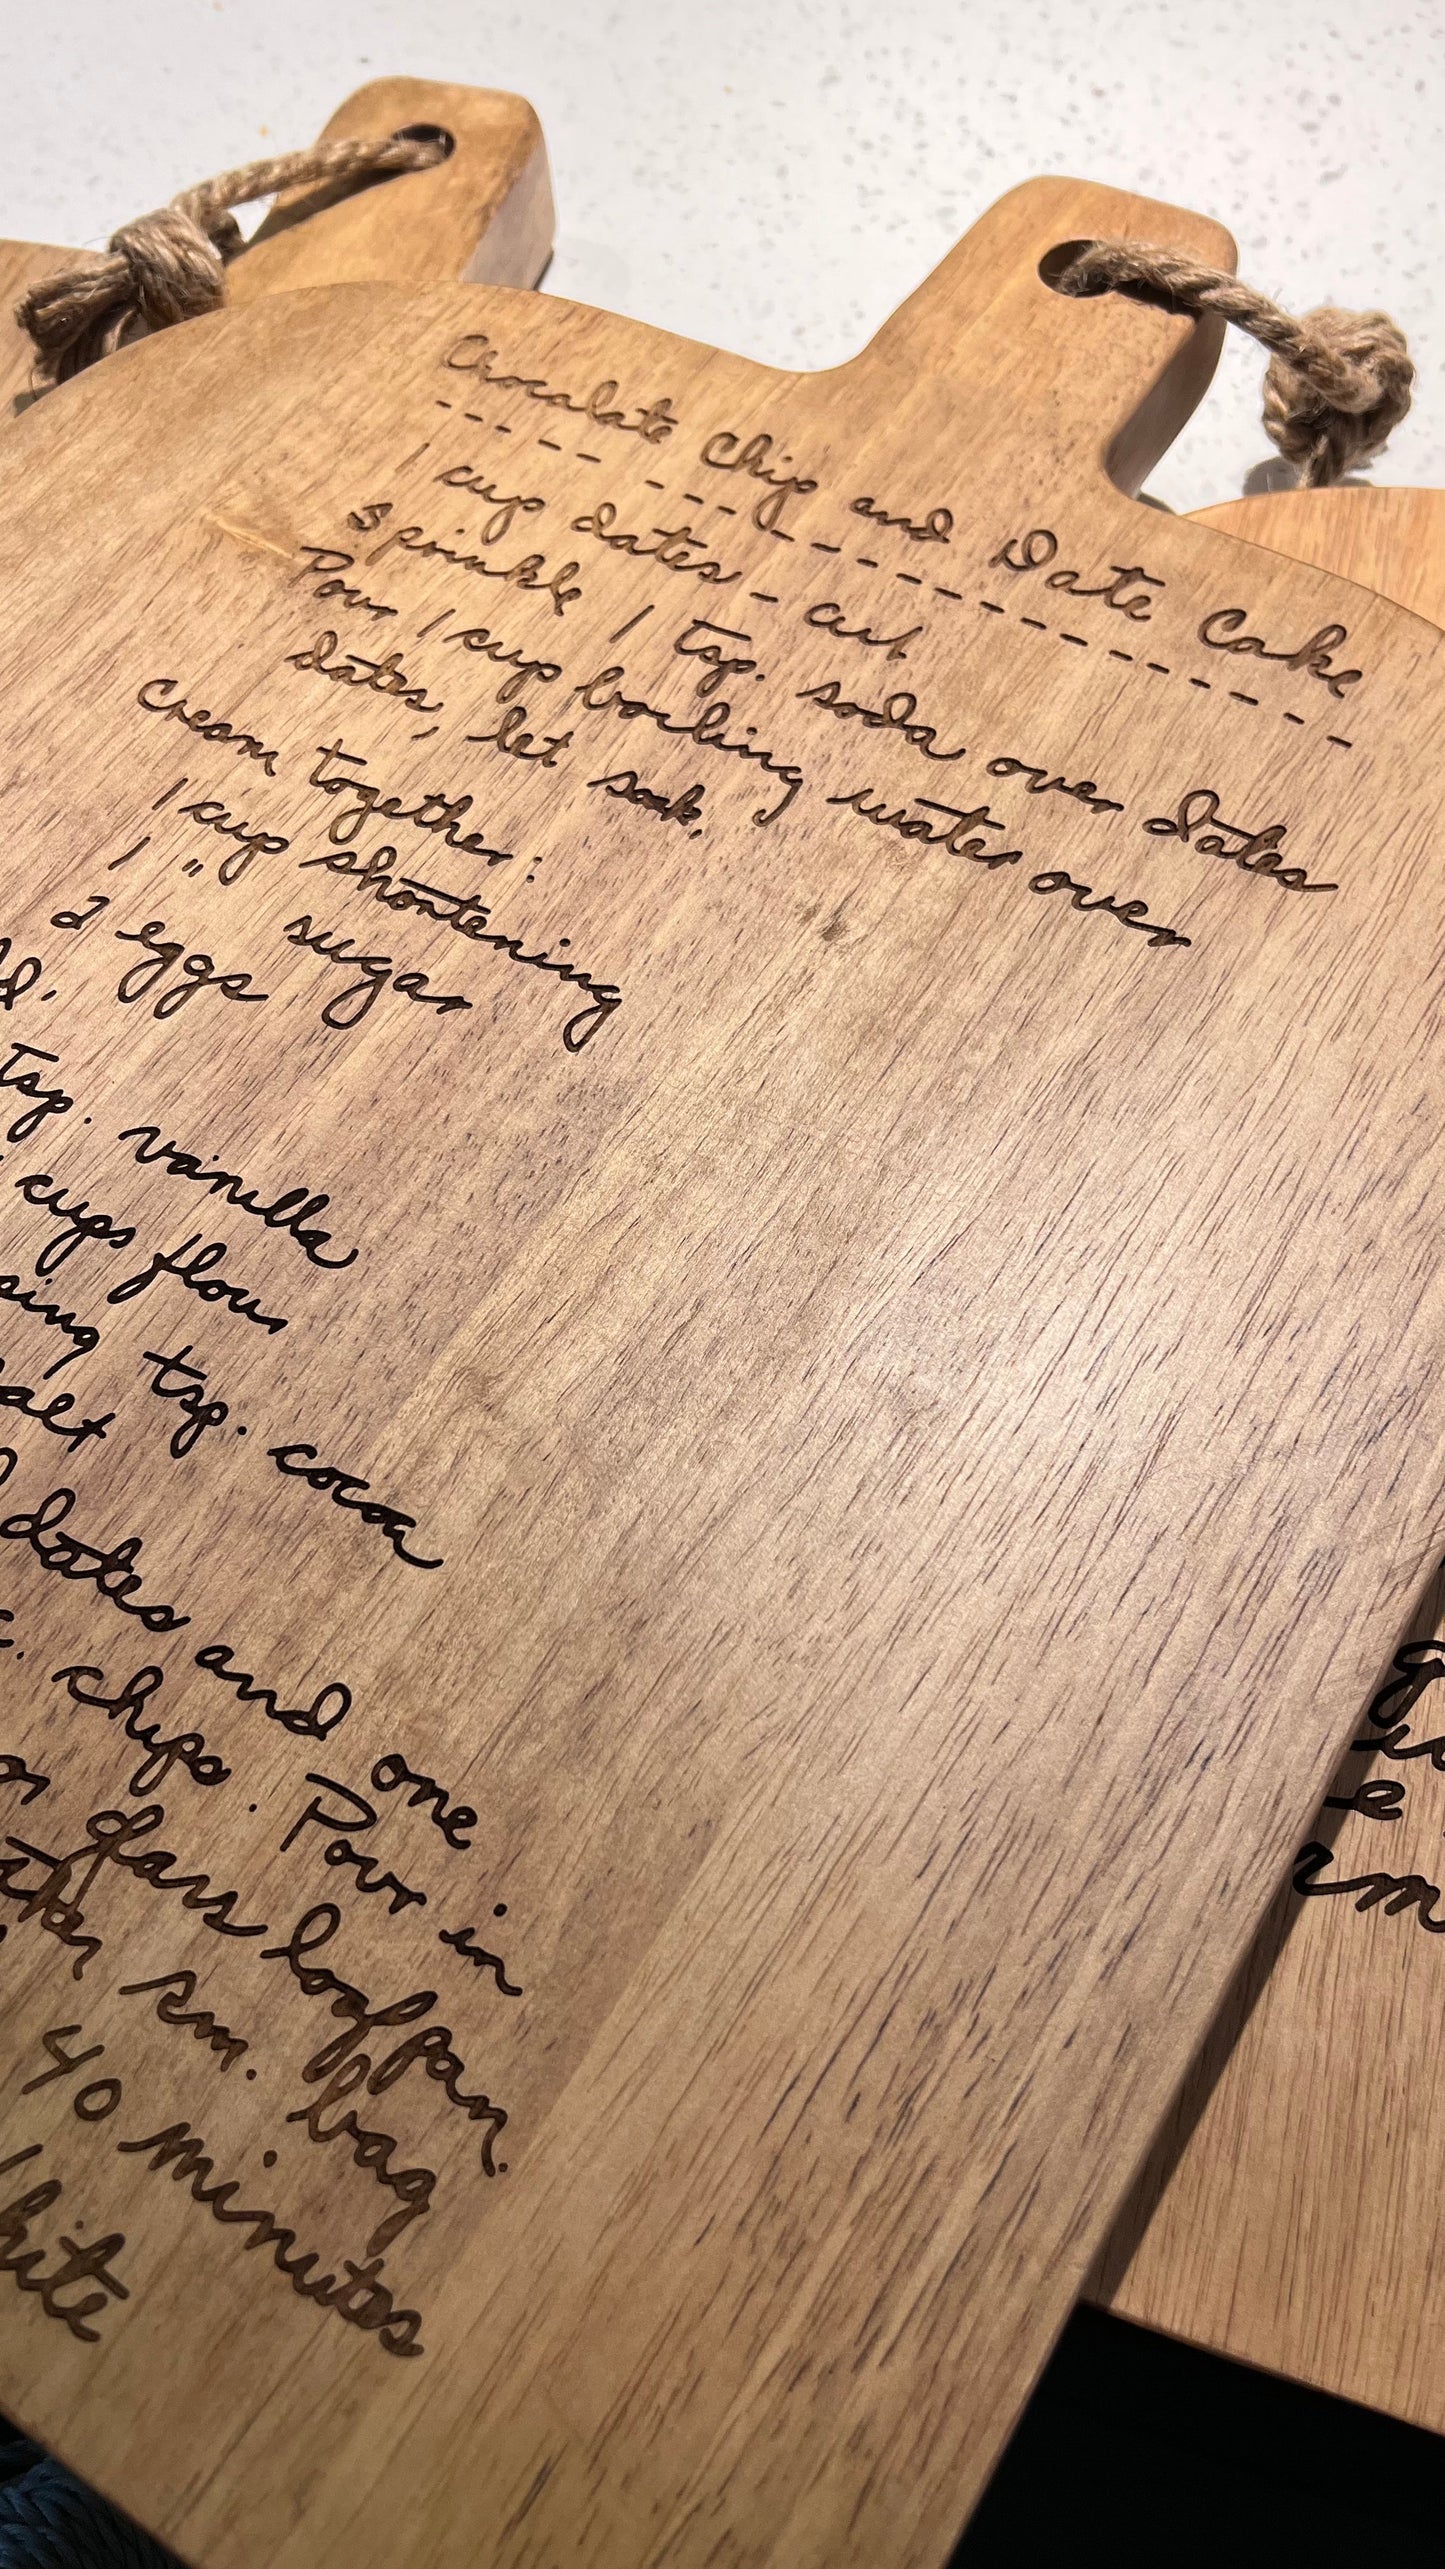 Chocalate Chip and Date Cake
1 cup dates - cut
Sprinkle 1 tsp. soda over dates
Pour 1 cup boiling water over
dates, let soak.
Cream together:
1 cup shortening
1 " sugar
2 eggs
tsp. vanilla
cups flour
tsp. cocoa
dates and one
chips. Pour in
glass loafpan.
sm. bag
40 minutes